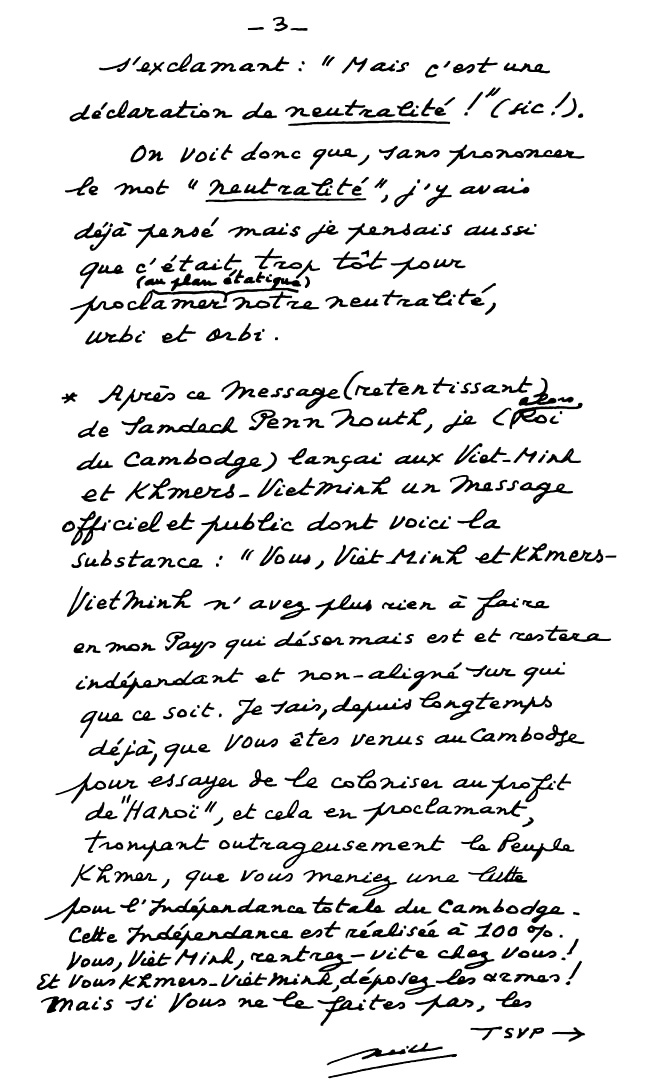 – 3 –
s'exclamant : "Mais c'est une
déclaration de neutralité !" (sic !).
On voit donc que, sans prononcer
le mot "neutralité", j'y avais
déjà pensé mais je pensais aussi
que c'était trop tôt pour
(au plan étatique)
proclamer notre neutralité,
urbi et orbi.
* Après ce Message (retentissant)
alors,
de Samdech Penn Nouth, je (Roi
du Cambodge) lançai aux Viet-Minh
et Khmers-VietMinh un Message
officiel et public dont voici la
substance : "Vous, Viêt Minh et Khmers-
VietMinh n'avez plus rien à faire
en mon Pays qui désormais est et restera
indépendant et non-aligné sur qui
que ce soit. Je sais, depuis longtemps
déjà, que Vous êtes venus au Cambodge
pour essayer de le coloniser au profit
de "Hanoï", et cela en proclamant,
trompant outrageusement le Peuple
Khmer, que vous meniez une lutte
pour l'Indépendance totale du Cambodge.
Cette Indépendance est réalisée à 100 %.
Vous, Viêt Minh, rentrez-vite chez vous !
Et Vous Khmers-Viêt Minh, déposez les armes !
Mais si Vous ne le faites pas, les
TSVP →